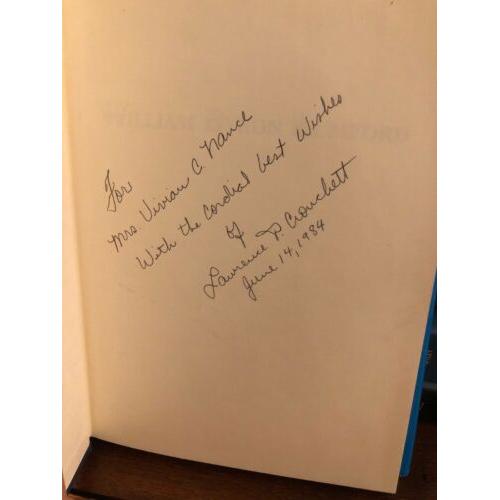 For
Mrs. Vivian C. Nance
With the Cordial best Wishes
of
Lawrence P. Crouchett
June 14, 1984